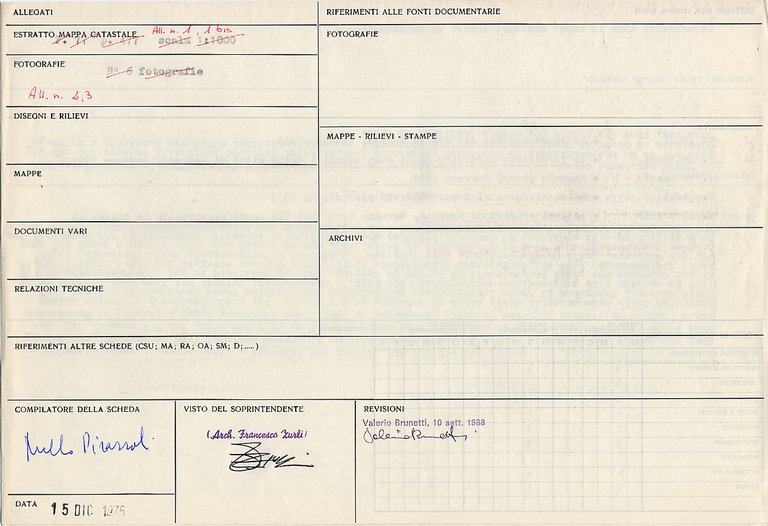 ALLEGATI
ESTRATTO MAPPA CATASTALE All. n. 1, 1 bis
scala 1:1000
FOTOGRAFIE
N° 6 fotografie
All. n. 2,3
DISEGNI E RILIEVI
MAPPE
DOCUMENTI VARI
RELAZIONI TECNICHE
RIFERIMENTI ALLE FONTI DOCUMENTARIE
FOTOGRAFIE
MAPPE - RILIEVI - STAMPE
ARCHIVI
RIFERIMENTI ALTRE SCHEDE (CSU; MA; RA; OA; SM; D;.....)
COMPILATORE DELLA SCHEDA
DATA 15 DIC 1975
VISTO DEL SOPRINTENDENTE
(Arch. Francesco Zurli)
REVISIONI
Valerio Brunetti, 10 sett. 1988